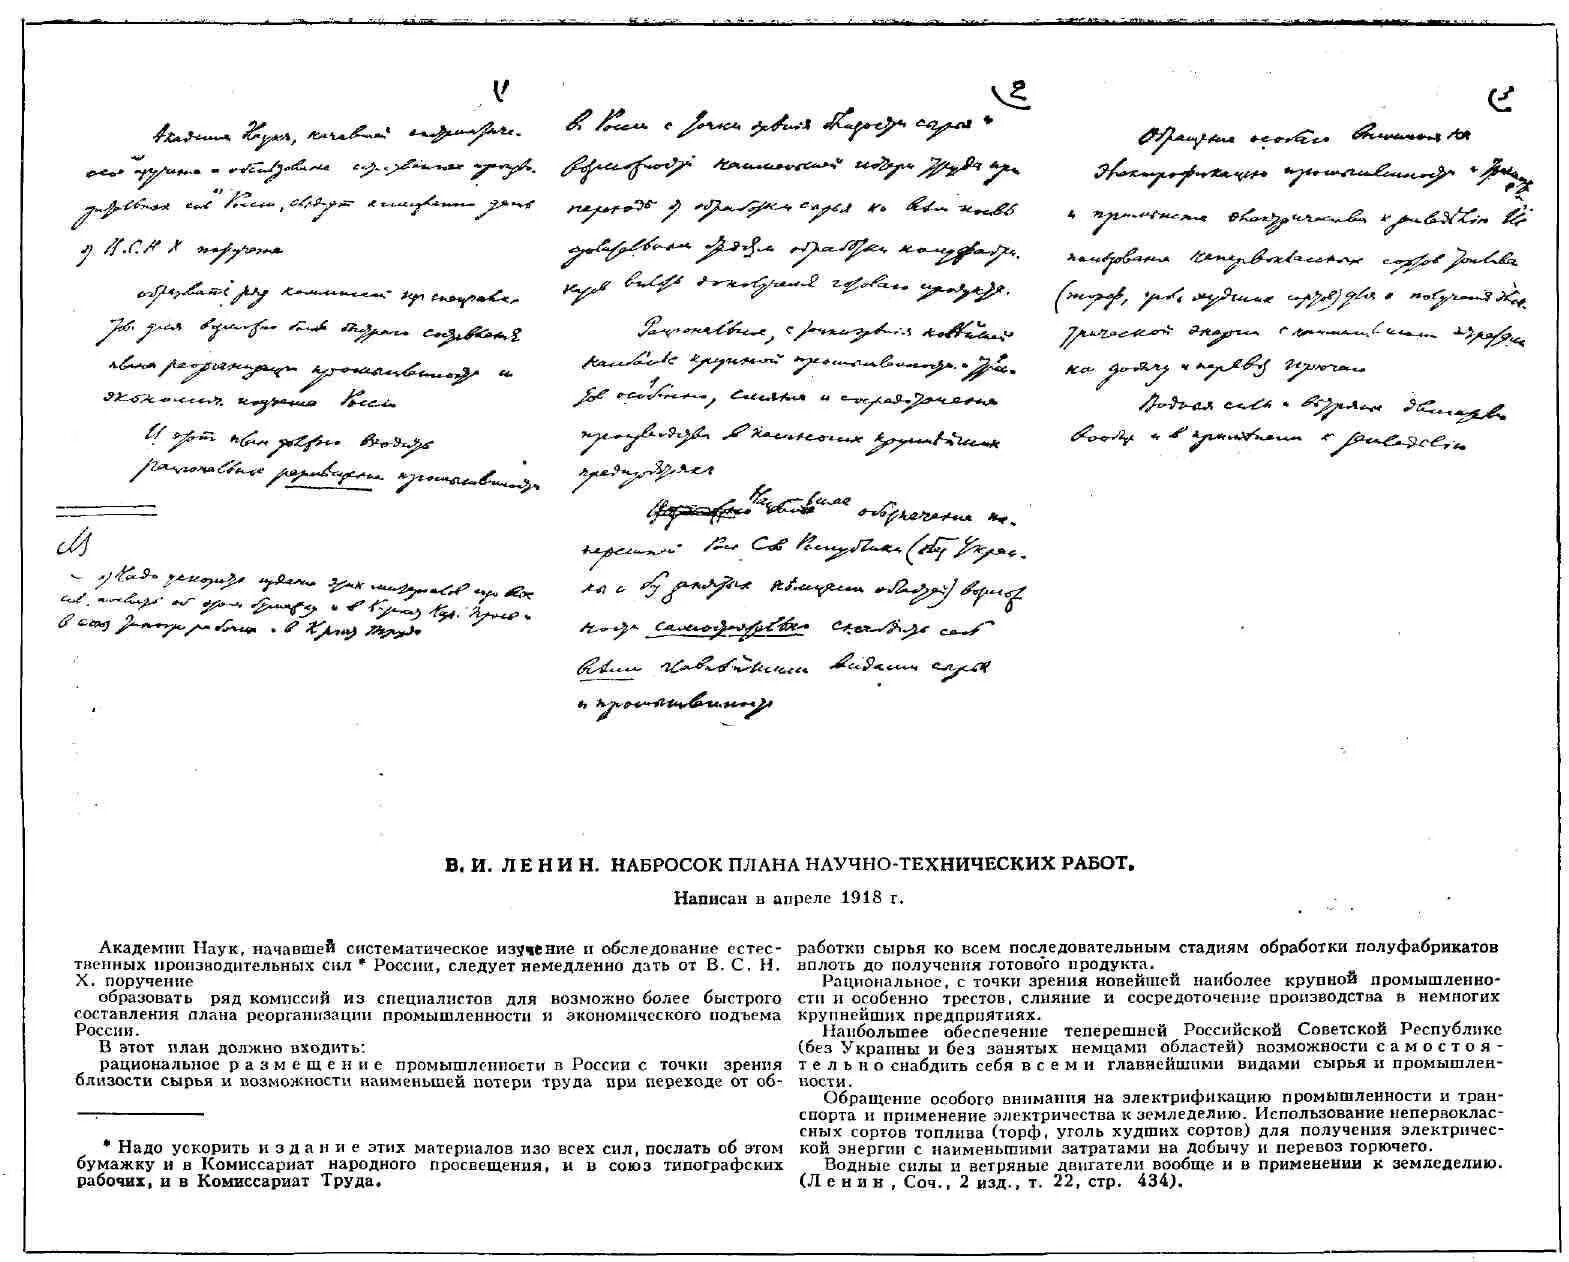 1
Академии Наук, начавшей систематиче-
ское изучение и обследование естественных произво-
дительных сил России, следует немедленно дать
от В.С.Н.Х поручение
образовать ряд комиссий из специалис-
тов для возможно более быстрого составления
плана реорганизации промышленности и
экономич. подъема России
В этот план должно входить
рациональное размещение промышленности
Надо ускорить издание этих материалов изо всех
сил, послать об этом бумажку и в
в союз рабочих и в Ком Труда
2
в России с точки зрения близости сырья и
возможности наименьшей потери труда при
переходе от обработки сырья ко всем после-
довательным стадиям обработки полуфабри-
катов вплоть до получения готового продукта.
Рациональное, с точки зрения новейшей
наиболее крупной промышленности и трес-
тов особенно, слияние и сосредоточение
производства в немногих крупнейших
предприятиях
Наибольшее обеспечение те-
перешней Рос Сов Республики (без Украи-
ны и без занятых немцами областей) возмож-
ности самостоятельно снабдить себя
всеми главнейшими видами сырья
и промышленности
3
Обращение особого внимания на
электрификацию промышленности и транспорта
и применение электричества к земледелию Ис-
пользование непервоклассных сортов топлива
(торф, уголь худших сортов) для получения элек-
трической энергии с наименьшими затратами
на добычу и перевоз горючего
Водные силы и ветряные двигатели
вообще и в применении к земледелию
В. И. ЛЕНИН. НАБРОСОК ПЛАНА НАУЧНО-ТЕХНИЧЕСКИХ РАБОТ.
Написан в апреле 1918 г.
Академии Наук, начавшей систематическое изучение и обследование естес-
твенных производительных сил * России, следует немедленно дать от В. С. Н.
Х. поручение
образовать ряд комиссий из специалистов для возможно более быстрого
составления плана реорганизации промышленности и экономического подъема
России.
В этот план должно входить:
рациональное размещение промышленности в России с точки зрения
близости сырья и возможности наименьшей потери труда при переходе от об-
* Надо ускорить издание этих материалов изо всех сил, послать об этом
бумажку и в Комиссариат народного просвещения, и в союз типографских
рабочих, и в Комиссариат Труда.
работки сырья ко всем последовательным стадиям обработки полуфабрикатов
вплоть до получения готового продукта.
Рациональное, с точки зрения новейшей наиболее крупной промышленно-
сти и особенно трестов, слияние и сосредоточение производства в немногих
крупнейших предприятиях.
Наибольшее обеспечение теперешней Российской Советской Республике
(без Украины и без занятых немцами областей) возможности самостоя-
тельно снабдить себя всеми главнейшими видами сырья и промышлен-
ности.
Обращение особого внимания на электрификацию промышленности и тран-
спорта и применение электричества к земледелию. Использование непервоклас-
сных сортов топлива (торф, уголь худших сортов) для получения электричес-
кой энергии с наименьшими затратами на добычу и перевоз горючего.
Водные силы и ветряные двигатели вообще и в применении к земледелию.
(Ленин, Соч., 2 изд., т. 22, стр. 434).